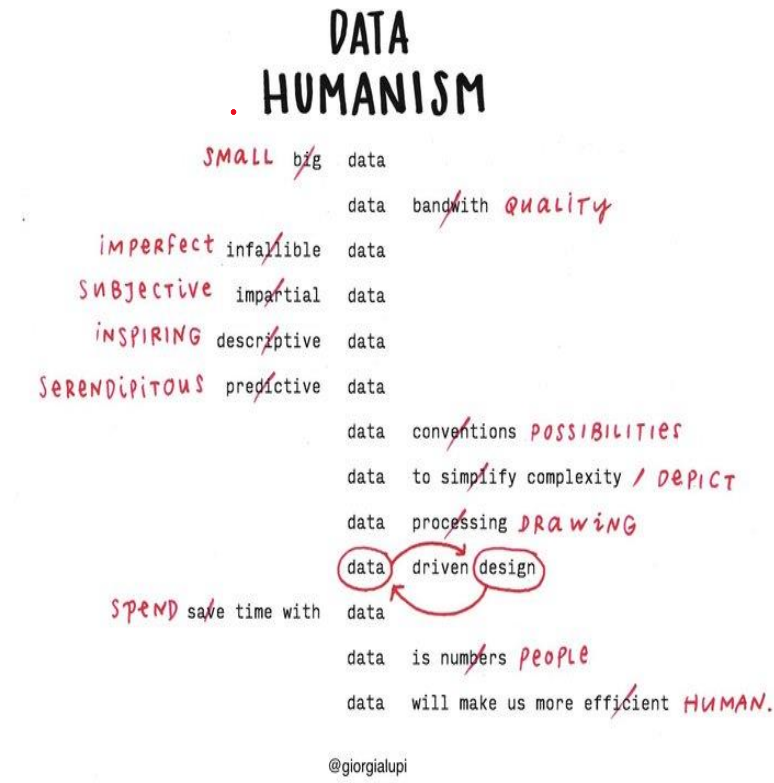 DATA
HUMANISM
SMALL big data
data bandwith QUALITY
IMPERFECT infallible data
SUBJECTIVE impartial data
INSPIRING descriptive data
SERENDIPITOUS predictive data
data conventions POSSIBILITIES
data to simplify complexity / DEPICT
data processing DRAWING
data driven design
SPEND save time with data
data is numbers PEOPLE
data will make us more efficient HUMAN.
@giorgialupi